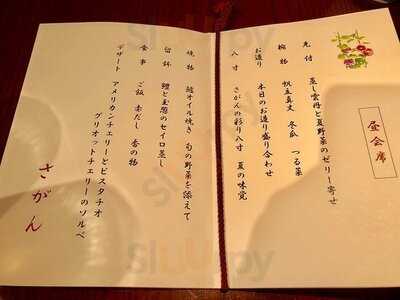 昼会席
先付　蒸し雲丹と夏野菜のゼリー寄せ
椀物　帆立真丈　冬瓜　つる菜
お造り　本日のお造り盛り合わせ
八寸　さがんの彩り八寸　夏の味覚
焼物　鱸オイル焼き　旬の野菜を添えて
留鉢　鱧と玉葱のセイロ蒸し
食事　ご飯　赤だし　香の物
デザート　アメリカンチェリーとピスタチオ
グリオットチェリーのソルベ
さがん